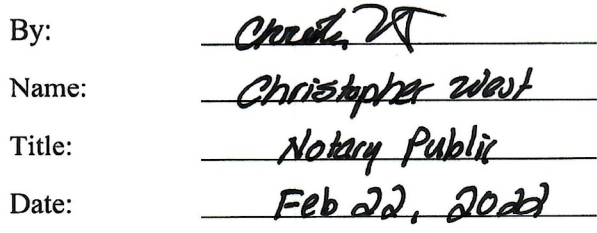 By:
Name: Christopher West
Title: Notary Public
Date: Feb 22, 2022